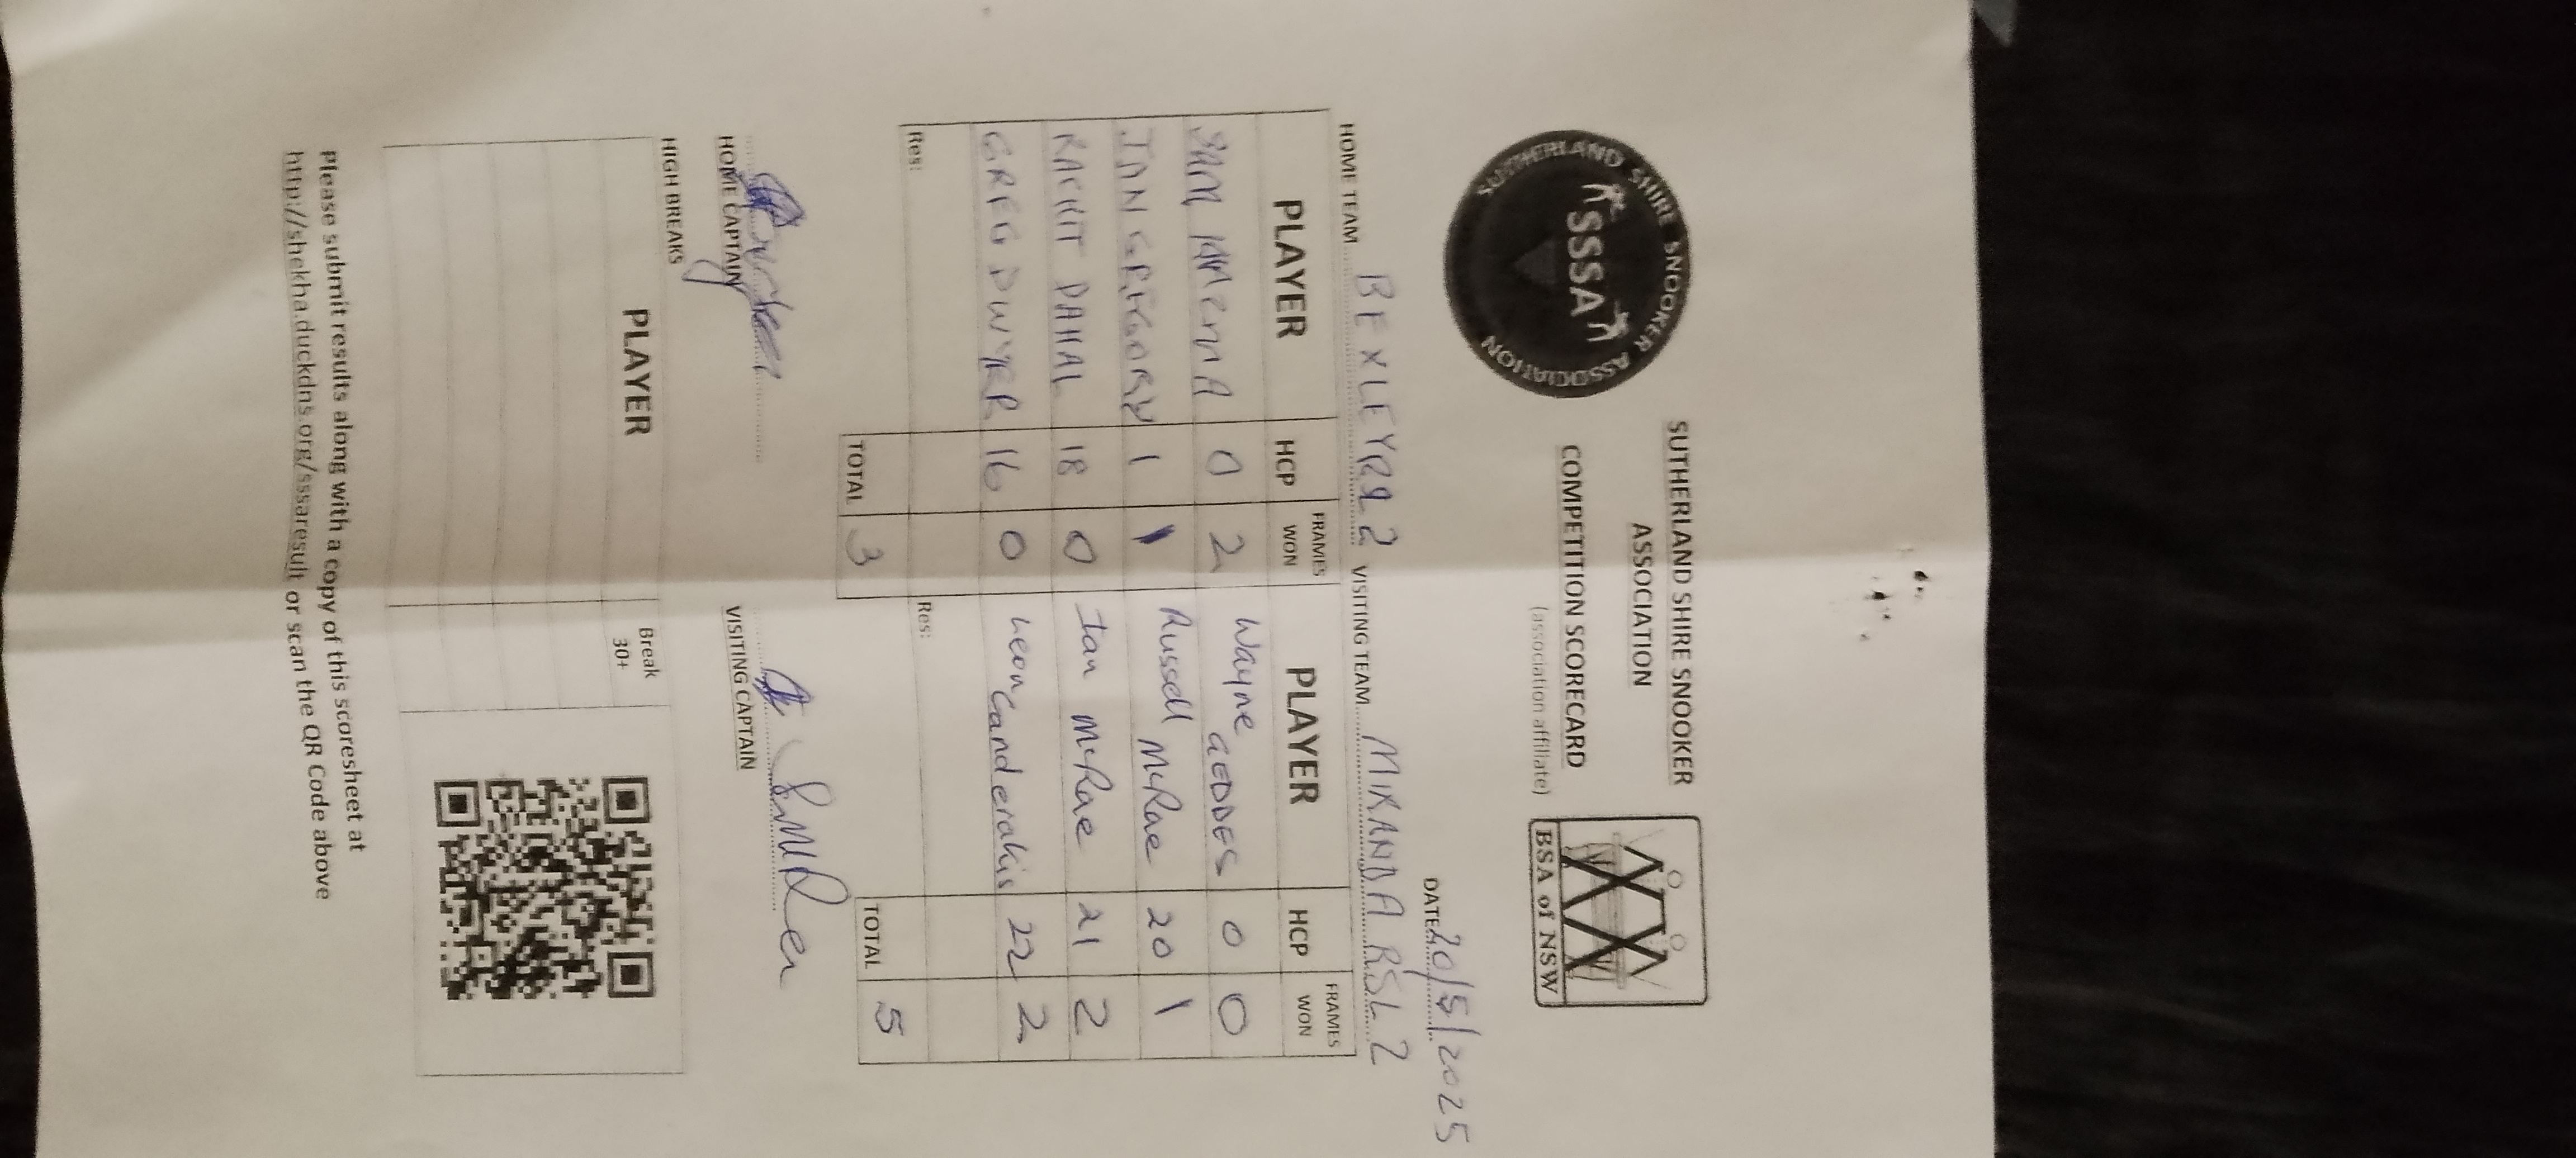 SUTHERLAND SHIRE SNOOKER ASSOCIATION
SSSA
SUTHERLAND SHIRE SNOOKER
ASSOCIATION
COMPETITION SCORECARD
(association affiliate)
BSA of NSW
DATE 20/5/2025
HOME TEAM BEXLEY RSL 2 VISITING TEAM MIRANDA RSL 2
PLAYER HCP FRAMES WON PLAYER HCP FRAMES WON
SAM 0 2 Wayne GEDDES 0 0
IAN GREGORY 1 1 Russell McRae 20 1
DAHAL 18 0 Ian McRae 21 2
GREG DWYER 16 0 Leon Canderakis 22 2
Res: Res:
TOTAL 3 TOTAL 5
HOME CAPTAIN VISITING CAPTAIN
HIGH BREAKS
PLAYER Break 30+
Please submit results along with a copy of this scoresheet at
http://shekha.duckdns.org/sssaresult or scan the QR Code above